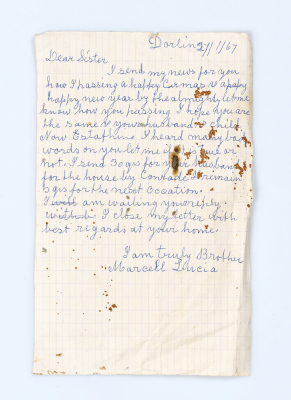 Dorlin 27/1/67
Dear Sister
I send my news for you
how I passing a happy Cirmas & a papy
happy new year by the almighty let me
know how you passing I hope you are
the same & your husband & Child
Now Estaphine I heard many bad
words on you let me if is true or
not. I send 30gs for your husband
for the house by Conrade I remain
5gs for the next occation.
I am wailing you reply
I close my letter with
best regards at your home.
I am truly Brother
Marcell Lucia